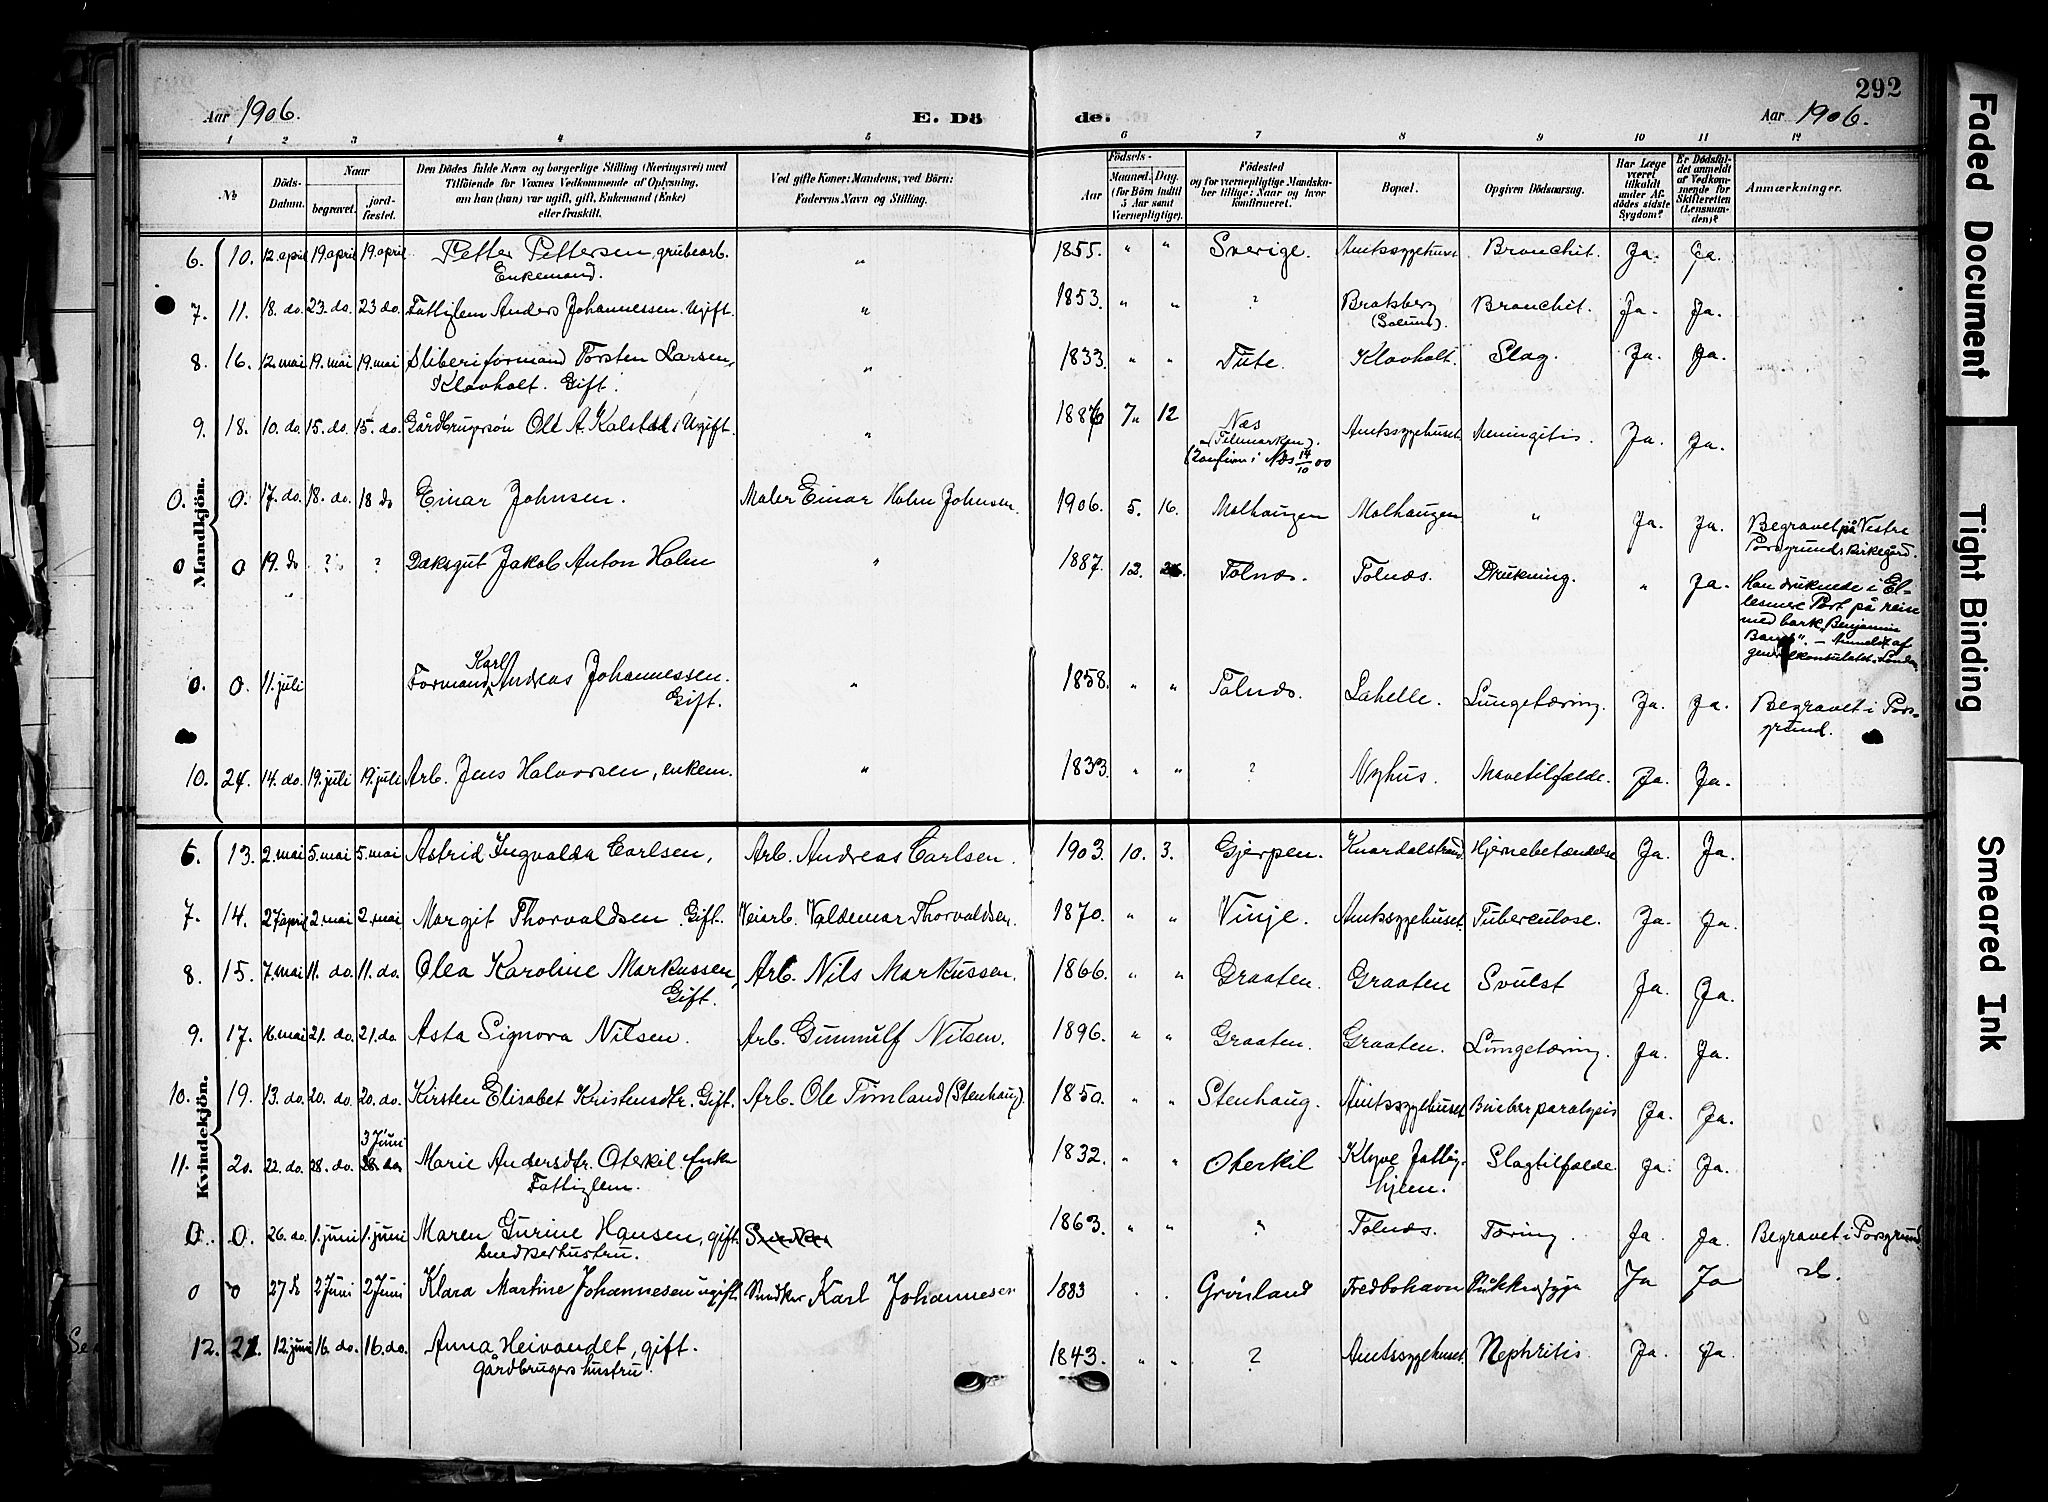 292
Aar 1906. E. Dö de. Aar 1906.
1 2 3 4 5 6 7 8 9 10 11 12
No Döds-Datum. Naar begravet. jord-fæstet. Den Dödes fulde Navn og borgerlige Stilling (Næringsvei) med Tilföiende for Voxnes Vedkommende af Oplysning, om han (hun) var ugift, gift, Enkemand (Enke) eller fraskilt. Ved gifte Koner: Mandens, ved Börn: Faderens Navn og Stilling. Födsels- Aar Maaned. Dag. (for Börn indtil 5 Aar samt Værnepligtige). Födested og for værnepligtige Mandskaber tillige: Naar og hvor konfirmeret. Bopæl. Opgiven Dödsaarsag. Har Læge været tilkaldt under Afdödes sidste Sygdom? Er Dödsfaldet anmeldt af Vedkommende for Skifteretten (Lensmanden)? Anmærkninger.
Mandkjön.
6. 10. 12. april 19. april 19. april Petter Pettersen, grubearb. Enkemand. " 1855. " " Sverige. Amtssygehuset. Bronchit. Ja. Ja.
7. 11. 18. do. 23. do. 23 do. Fattiglem Anders Johannessen. Ugift. " 1853. " " ? Bratsberg (Solum). Bronchit. Ja. Ja.
8. 16. 12. mai 19. mai 19. mai Sliberiformand Torsten Larsen, Klovholt. Gift. " 1833. " " Tute. Klovholt. Slag. Ja. Ja.
9. 18. 10. do. 15. do. 15. do. Gårdbrugersøn Ole A. Kalstad. Ugift. " 1886 7. 12 Næs (Telemarken). (Konfirm. i Næs 14/10 00 Amtssygehuset. Meningitis. Ja. Ja.
0. 0. 17. do. 18. do. 18 do Einar Johnsen. Maler Einar Holm Johnsen. 1906. 5. 16. Molhaugen Molhaugen " Ja. Ja. Begravet på Vestre Porsgrunds kirkegård.
0 0 19. do ? ? Dæksgut Jakob Anton Holm " 1887. 12. 26. Tolnæs. Tolnæs. Drukning. " Ja. Han druknede i Ellesmere Port på reise med bark "Benjamin Bangs". – Anmeldt af generalkonsulatet i London
0. 0. 11. juli Formand Karl Andreas Johannessen. Gift. " 1858. " " Tolnæs. Lahelle. Lungetæring. Ja. Ja. Begravet i Porsgrund.
10. 24. 14. do. 19. juli 19. juli Arb. Jens Halvorsen, enkem. " 1833. " " ? Nyhus. Mavetilfælde. Ja. Ja.
Kvindekjön.
6. 13. 2. mai 5. mai 5. mai Astrid Ingvalda Carlsen, Arb. Andreas Carlsen. 1903. 10. 3. Gjerpen. Knardalstrand. Hjernebetændelse Ja. Ja.
7. 14. 27 april 2. mai 2. mai Margit Thorvaldsen. Gift. Veiarb. Valdemar Thorvaldsen. 1870. " " Vinje. Amtssygehuset. Tuberculose. Ja. Ja.
8. 15. 7. mai 11. do. 11. do. Olea Karoline Markussen, Gift. Arb. Nils Markussen. 1866. " " Graaten. Graaten Svulst Ja. Ja.
9. 17. 16. mai 21. do. 21. do. Asta Signora Nilsen. Arb. Gunnulf Nilsen. 1896. " " Graaten. Graaten. Lungetæring. Ja. Ja.
10. 19. 13. do. 20. do. 20. do. Kirsten Elisabet Kristensdtr. Gift. Arb. Ole Timland (Stenhaug). 1850. " " Stenhaug. Amtssygehuset. paralysis Ja. Ja.
11. 20. 22. do. 28. do. 3 Juni 28. do. Marie Andersdtr. Oterkil. Enke Fattiglem. 1832. " " Oterkil Klyve Fattighjem. Slagtilfælde. Ja. Ja.
0. 0. 26. do. 1. juni 1. juni Maren Gurine Hansen, gift. Snedkerhustru. Snedker 1863. " " " Tolnæs. Tæring. Ja Ja. Begravet i Porsgrund.
0 0 27 do 2 Juni 2 Juni Klara Martine Johannesen ugift. Snedker Karl Johannesen 1883 . . Grønland Fredbohavn Sukkersyge Ja Ja do.
12. 21. 12. juni 16. do. 16. do. Anna Heivandet, gift. gårdbrugers hustru. 1843. " " ? Amtssygehuset. Nephritis. Ja. Ja.
Faded Document
Tight Binding
Smeared Ink